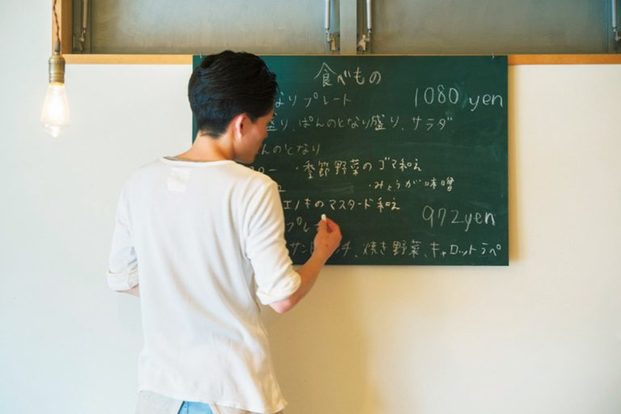 食べもの
なりプレート 1080 yen
盛り、ぱんのとなり盛り、サラダ
んのとなり
・季節野菜のゴマ和え
・みょうが味噌
エノキのマスタード和え
プレ 972 yen
サン 、焼き野菜、キャロットラペ